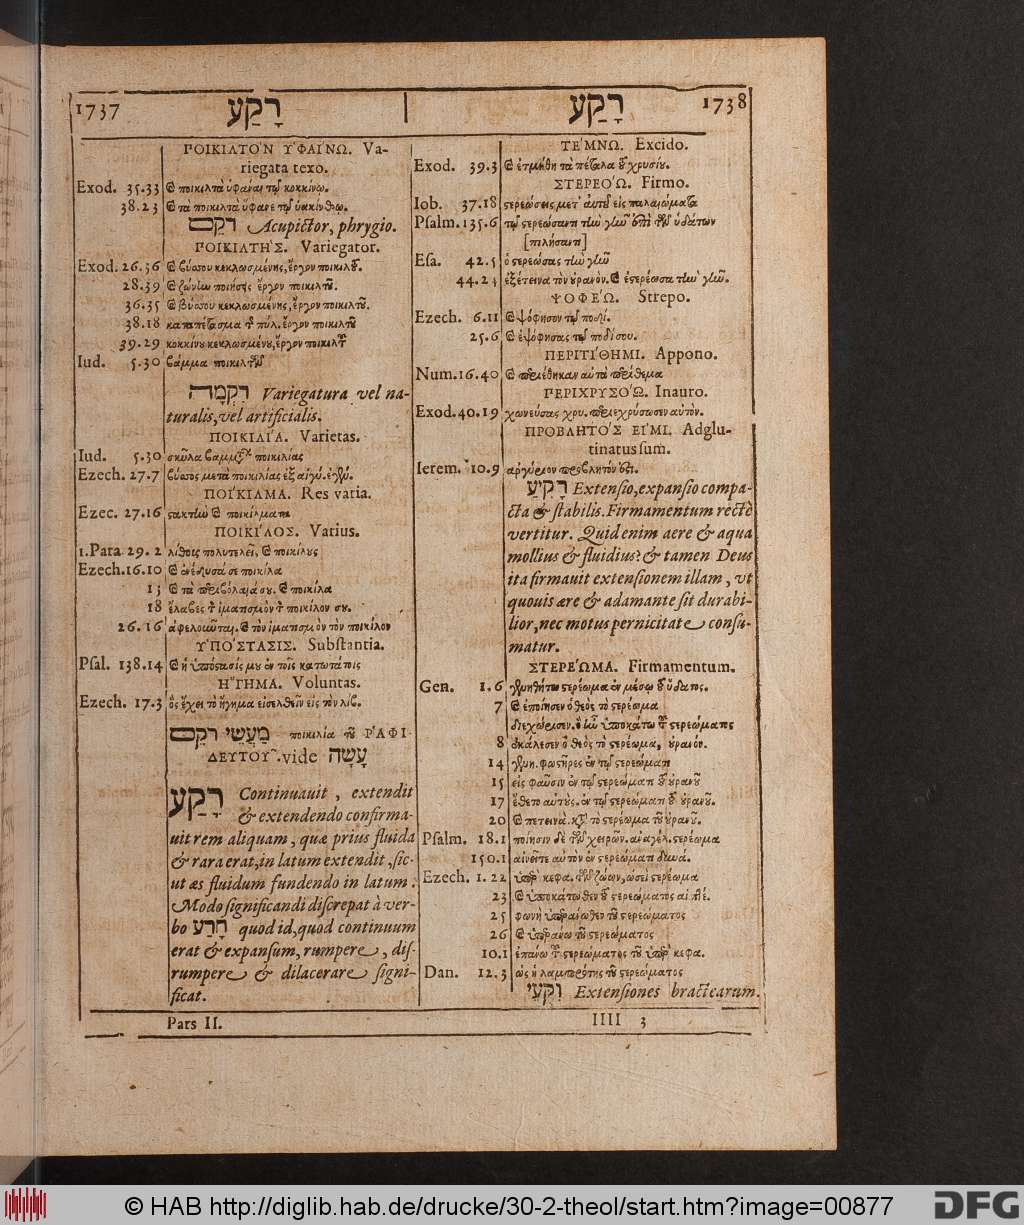 1737 רָקַע
ΠΟΙΚΙΛΤΟ῍Ν ΥΦΑΙΝΩ. Va-
riegata texo.
Exod. 35.33 ϗ ποικιλτὰ ὑφᾶναι τῷ κοκκίνῳ.
38.23 ϗ τὰ ποικιλτὰ ὕφανε τῷ ὑακίνθῳ.
רֹקֵם Acupictor, phrygio.
ΠΟΙΚΙΛΤΗ῍Σ. Variegator.
Exod. 26.36 ϗ βύσσου κεκλωσμένης, ἔργον ποικιλτοῦ.
28.39 ϗ ζώνίω ποιήσης ἔργον ποικιλτοῦ.
36.35 ϗ βύσσου κεκλωσμένης, ἔργον ποικιλτοῦ.
38.18 καταπέτασμα τ πύλ. ἔργον ποικιλτοῦ
39.29 κοκκίνου κεκλωσμένου, ἔργον ποικιλτ
Iud. 5.30 βάμμα ποικιλτῶν
רִקְמָה Variegatura vel na-
turalis, vel artificialis.
ΠΟΙΚΙΛΙ΄Α. Varietas.
Iud. 5.30 σκῦλα βαμμάτων ποικιλίας
Ezech. 27.7 βύσσος μετὰ ποικιλίας ἐξ αἰγύ.
ΠΟΙ΄ΚΙΛΜΑ. Res varia.
Ezec. 27.16 στακτίω ϗ ποικίλματα
ΠΟΙΚΙ΄ΛΟΣ. Varius.
1.Para 29.2 λίθοις πολυτελεῖ, ϗ ποικίλους
Ezech. 16.10 ϗ ἐνέδυσά σε ποικίλα
13 ϗ τὰ περιβόλαιά σου. ϗ ποικίλα
18 ἔλαβες τ ἱματισμὸν τ ποικίλον σου.
26.16 ἀφελοῦνται. ϗ τὸν ἱματισμὸν τὸν ποικίλον
ΥΠΟ΄ΣΤΑΣΙΣ. Substantia.
Psal. 138.14 ϗ ἡ ὑπόστασίς μου ἐν τοῖς κατωτάτοις
Η῞ΓΗΜΑ. Voluntas.
Ezech. 17.3 ὃς ἔχει τὸ ἥγημα εἰσελθεῖν εἰς τὸν λίβ.
מַעֲשֵׂי רֹקֵם ποικιλία τοῦ ΡΑΦΙ-
ΔΕΥΤΟΥ῀. vide עָשָׂה
רָקַע Continuauit, extendit
& extendendo confirma-
uit rem aliquam, quæ prius fluida
& rara erat, in latum extendit, sic-
ut æs fluidum fundendo in latum.
Modo significandi discrepat à ver-
bo קָרַע quod id, quod continuum
erat & expansum, rumpere, dis-
rumpere & dilacerare signi-
ficat.
Pars II.
רָקַע 1738
ΤΕ΄ΜΝΩ. Excido.
Exod. 39.3 ϗ ἐτμήθη τὰ πέταλα τοῦ χρυσίου.
ΣΤΕΡΕΟ΄Ω. Firmo.
Iob. 37.18 στερεώσεις μετ᾽ αὐτοῦ εἰς παλαιώματα
Psalm. 135.6 τῷ στερεώσαντι τὼ γῆν ἐπὶ τῶν ὑδάτων
[πιλήσαντι]
Esa. 42.5 ὁ στερεώσας τὼ γῆν
44.24 ἐξέτεινα τὸν οὐρανόν. ϗ ἐστερέωσα τὼ γῆν.
ΨΟΦΕ΄Ω. Strepo.
Ezech. 6.11 ϗ ψόφησον τῷ ποδί.
25.6 ϗ ἐψόφησας τῷ ποδί σου.
ΠΕΡΙΤΙ΄ΘΗΜΙ. Appono.
Num. 16.40 ϗ περιέθηκαν αὐτὰ περίθεμα
ΠΕΡΙΧΡΥΣΟ΄Ω. Inauro.
Exod. 40.19 χωνεύσας χρυ. περιεχρύσωσεν αὐτόν.
ΠΡΟΒΛΗΤΟ΄Σ ΕΙ΄ΜΙ. Adglu-
tinatus sum.
Ierem. 10.9 ἀργύριον προσβλητόν ἐστι.
רָקִיעַ Extensio, expansio compa-
cta & stabilis. Firmamentum rectè
vertitur. Quid enim aere & aqua
mollius & fluidius? & tamen Deus
ita firmauit extensionem illam, vt
quouis ære & adamante sit durabi-
lior, nec motus pernicitate consu-
matur.
ΣΤΕΡΕ΄ΩΜΑ. Firmamentum.
Gen. 1.6 γενηθήτω στερέωμα ἐν μέσῳ τοῦ ὕδατος.
7 ϗ ἐποίησεν ὁ θεὸς τὸ στερέωμα
διεχώρισεν. ὑποκάτω τ στερεώματος
8 ἐκάλεσεν ὁ θεὸς τὸ στερέωμα, οὐρανόν.
14 γεν. φωστῆρες ἐν τῷ στερεώματι
15 εἰς φαῦσιν ἐν τῷ στερεώματι τοῦ οὐρανοῦ
17 ἔθετο αὐτοὺς. ἐν τῷ στερεώματι τοῦ οὐρανοῦ.
20 ϗ πετεινὰ. κατὰ τὸ στερέωμα τοῦ οὐρανοῦ.
Psalm. 18.1 ποίησιν δὲ τῶν χειρῶν. ἀναγέλ. στερέωμα
150.1 αἰνεῖτε αὐτὸν ἐν στερεώματι δυνά.
Ezech. 1.22 ὑπὲρ κεφα. τῶν ζώων, ὡσεὶ στερέωμα
23 ϗ ὑποκάτωθεν τοῦ στερεώματος αἱ πτέ.
25 φωνὴ ὑπεράνωθεν τοῦ στερεώματος
26 ϗ ὑπεράνω τοῦ στερεώματος
10.1 ἐπάνω τ στερεώματος τοῦ ὑπὲρ κεφα.
Dan. 12.3 ὡς ἡ λαμπρότης τοῦ στερεώματος
רִקֻּעֵי Extensiones bractearum.
IIII 3
© HAB http://diglib.hab.de/drucke/30-2-theol/start.htm?image=00877
DFG